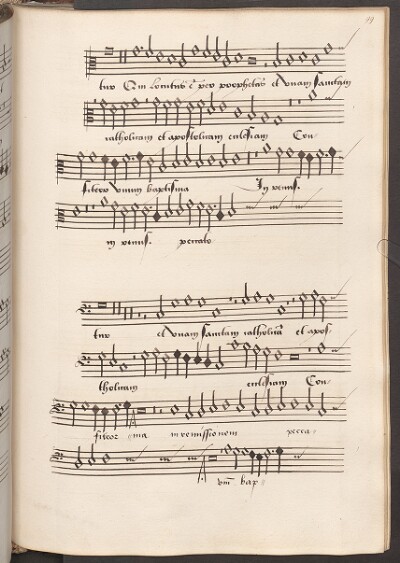 tur Qui locutus ē per prophetas et vnam sanctam
catholicam et apostolicam ecclesiam Con-
fiteor vnum baptisma In remiss.
in remiss. peccato
tur et vnam sanctam catholicā et apos-
tholicam ecclesiam Con-
fiteor -ma in remissionem pecca-
vnū bap-